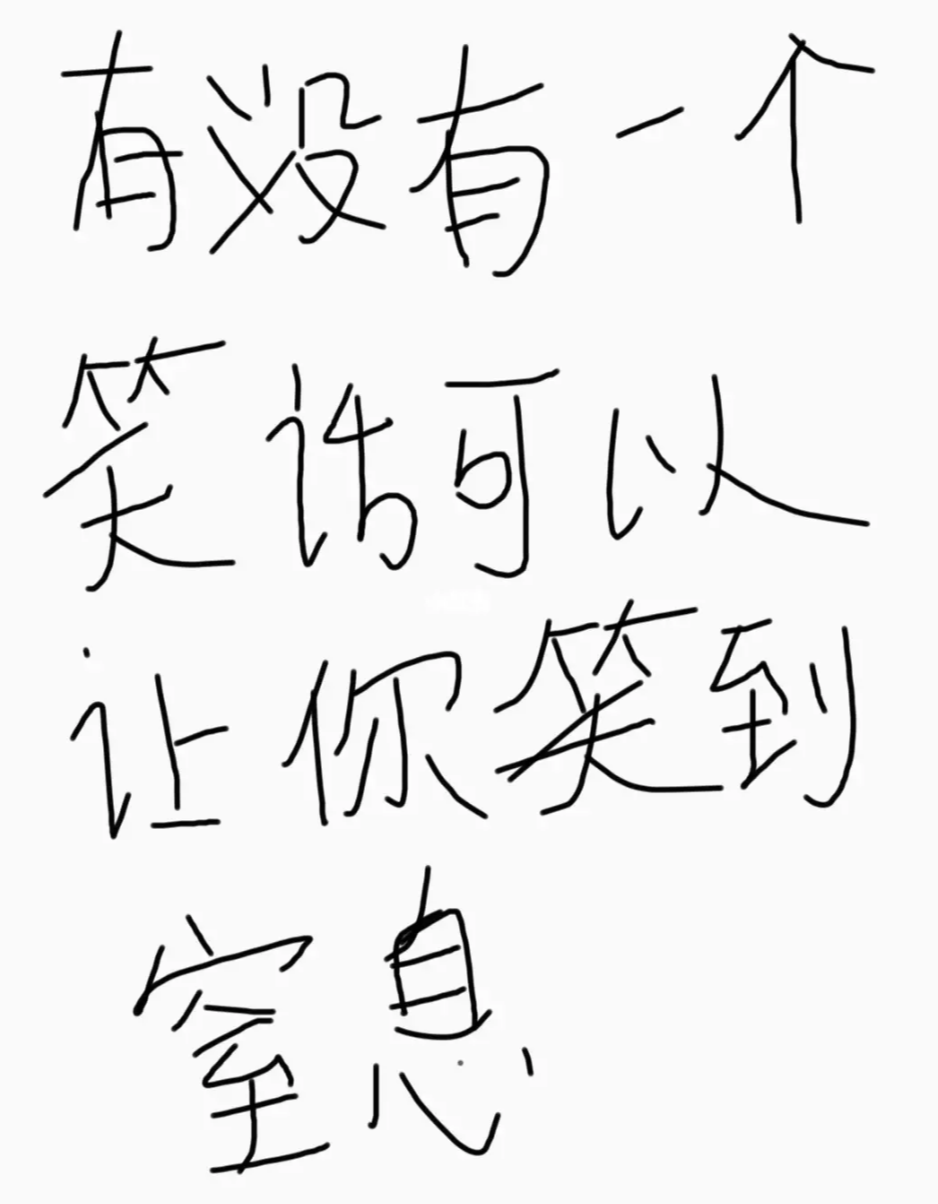 有没有一个
笑话可以
让你笑到
窒息